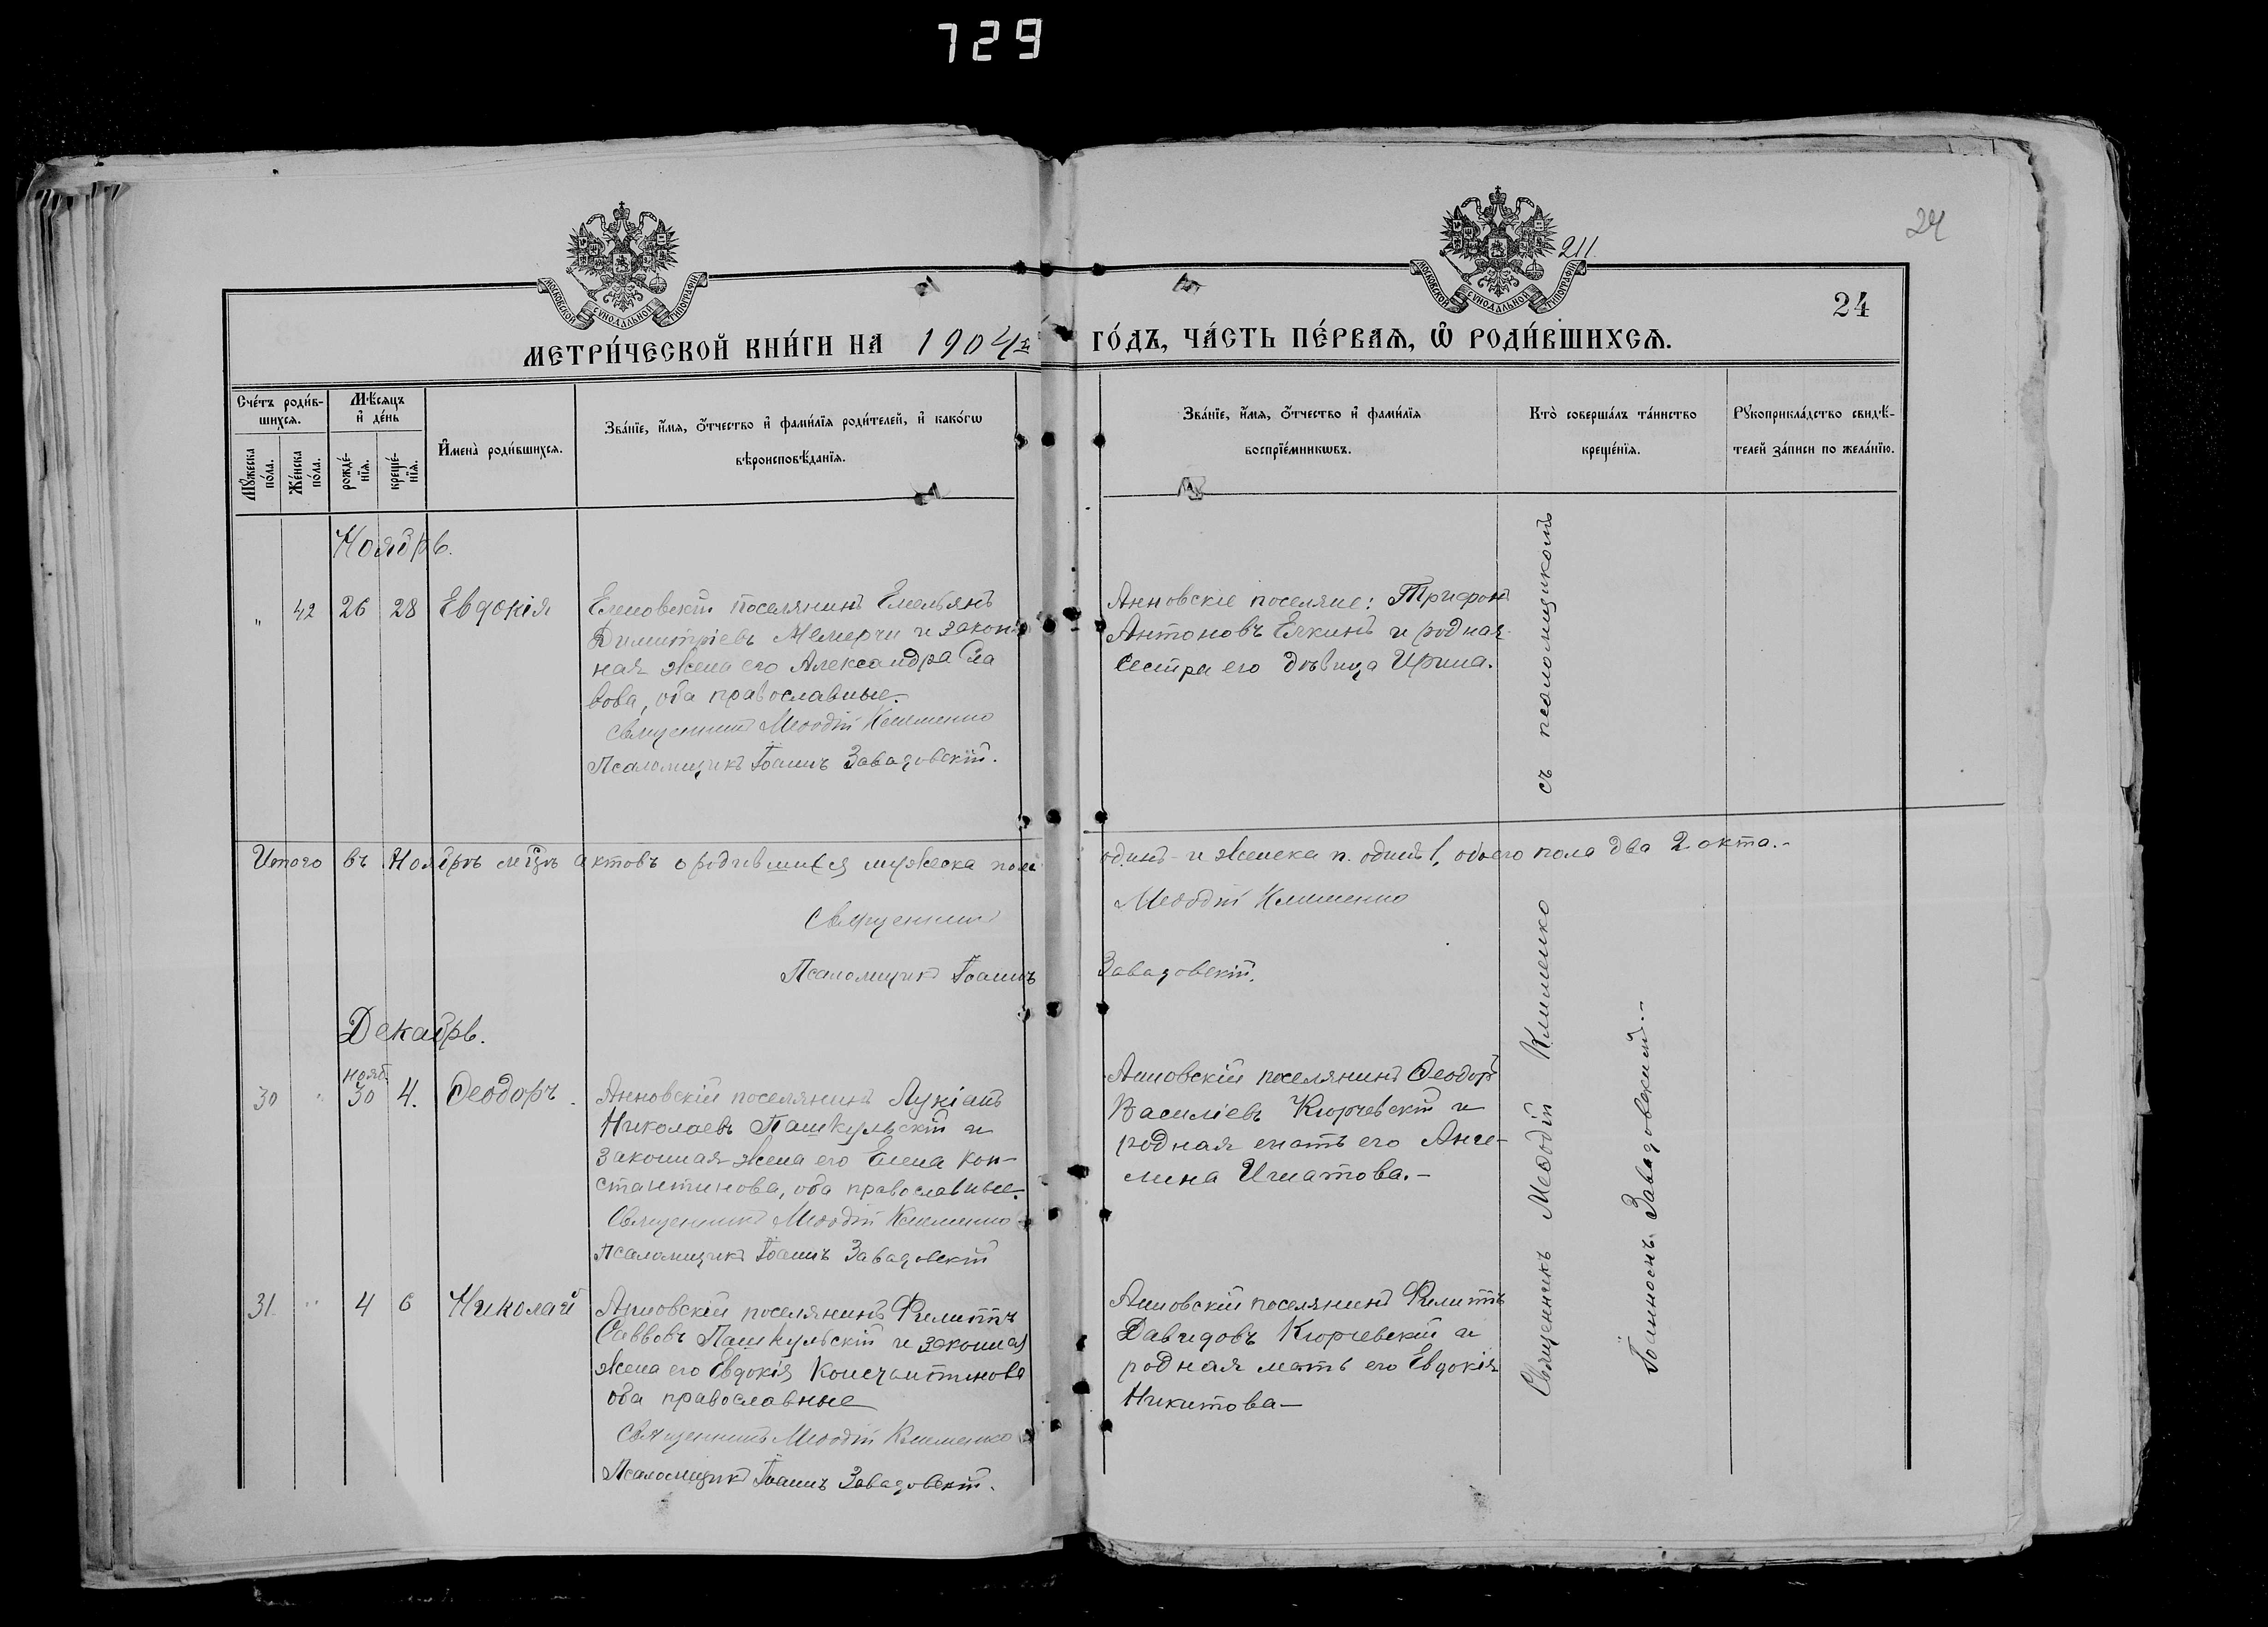 729
24
211
24
МОСКОВСКОЙ СУНОДАЛЬНОЙ ТИПОГРАФІИ
МОСКОВСКОЙ СУНОДАЛЬНОЙ ТИПОГРАФІИ
МЕТРИ́ЧЕСКОЙ КНИ́ГИ НА 1904й ГО́ДЪ, ЧА́СТЬ ПЕ́РВАѦ, Ѡ҆ РОДИ́ВШИХСѦ.
Сче́тъ роди́в-
шихсѧ.
Мꙋ́жеска по́ла.
Же́нска по́ла.
Мѣ́сѧцъ
и҆ де́нь
рожде́-нїѧ.
креще́-нїѧ.
И҆мена̀ роди́вшихсѧ.
Зва́нїе, и҆́мѧ, ѻ҆́тчество и҆ фами́лїѧ роди́телей, и҆ како́гѡ
вѣроисповѣ́данїѧ.
Зва́нїе, и҆́мѧ, ѻ҆́тчество и҆ фами́лїѧ
воспрїе́мникѡвъ.
Кто̀ соверша́лъ та́инство
креще́нїѧ.
Рꙋкоприкла́дство свидѣ́-
телей за́писи по жела́нїю.
Ноябрь.
" 42 26 28 Евдокія
Еленовскій поселянинъ Емельянъ
Димитріевъ Мемерчи и закон-
ная жена его Александра Сла
вова, оба православные.-
Священникъ Меѳодій Клименко
Псаломщикъ Іоаннъ Завадовскій.
Анновскіе поселяне: Трифонъ
Антоновъ Елкинъ и родная
сестра его дѣвица Ирина.
Итого въ Ноябрѣ мѣцѣ актовъ о родившихся мужеска пола одинъ и женска п. одинъ 1, обоего пола два 2 акта.-
Священникъ Меѳодій Клименко
Псаломщикъ Іоаннъ Завадовскій.
Декабрь.
нояб.
30 " 30 4. Ѳеодоръ.
Анновскій поселянинъ Лукіанъ
Николаевъ Пашкульскій и
законная жена его Елена Кон-
стантинова, оба православные.
Священникъ Меѳодій Клименко
Псаломщикъ Іоаннъ Завадовскій
Анновскій поселянинъ Ѳеодоръ
Василіевъ Кюрчевскій и
родная мать его Анге-
лина Игнатова.-
31. " 4 6 Николай
Анновскій поселянинъ Филиппъ
Саввовъ Пашкульскій и законная
жена его Евдокія Константинова
оба православные
Священникъ Меѳодій Клименко
Псаломщикъ Іоаннъ Завадовскій.
Анновскій поселянинъ Филиппъ
Давидовъ Кюрчевскій и
родная мать его Евдокія
Никитова-
Священникъ Меѳодій Клименко съ псаломщикомъ
Іоанномъ Завадовскимъ.-